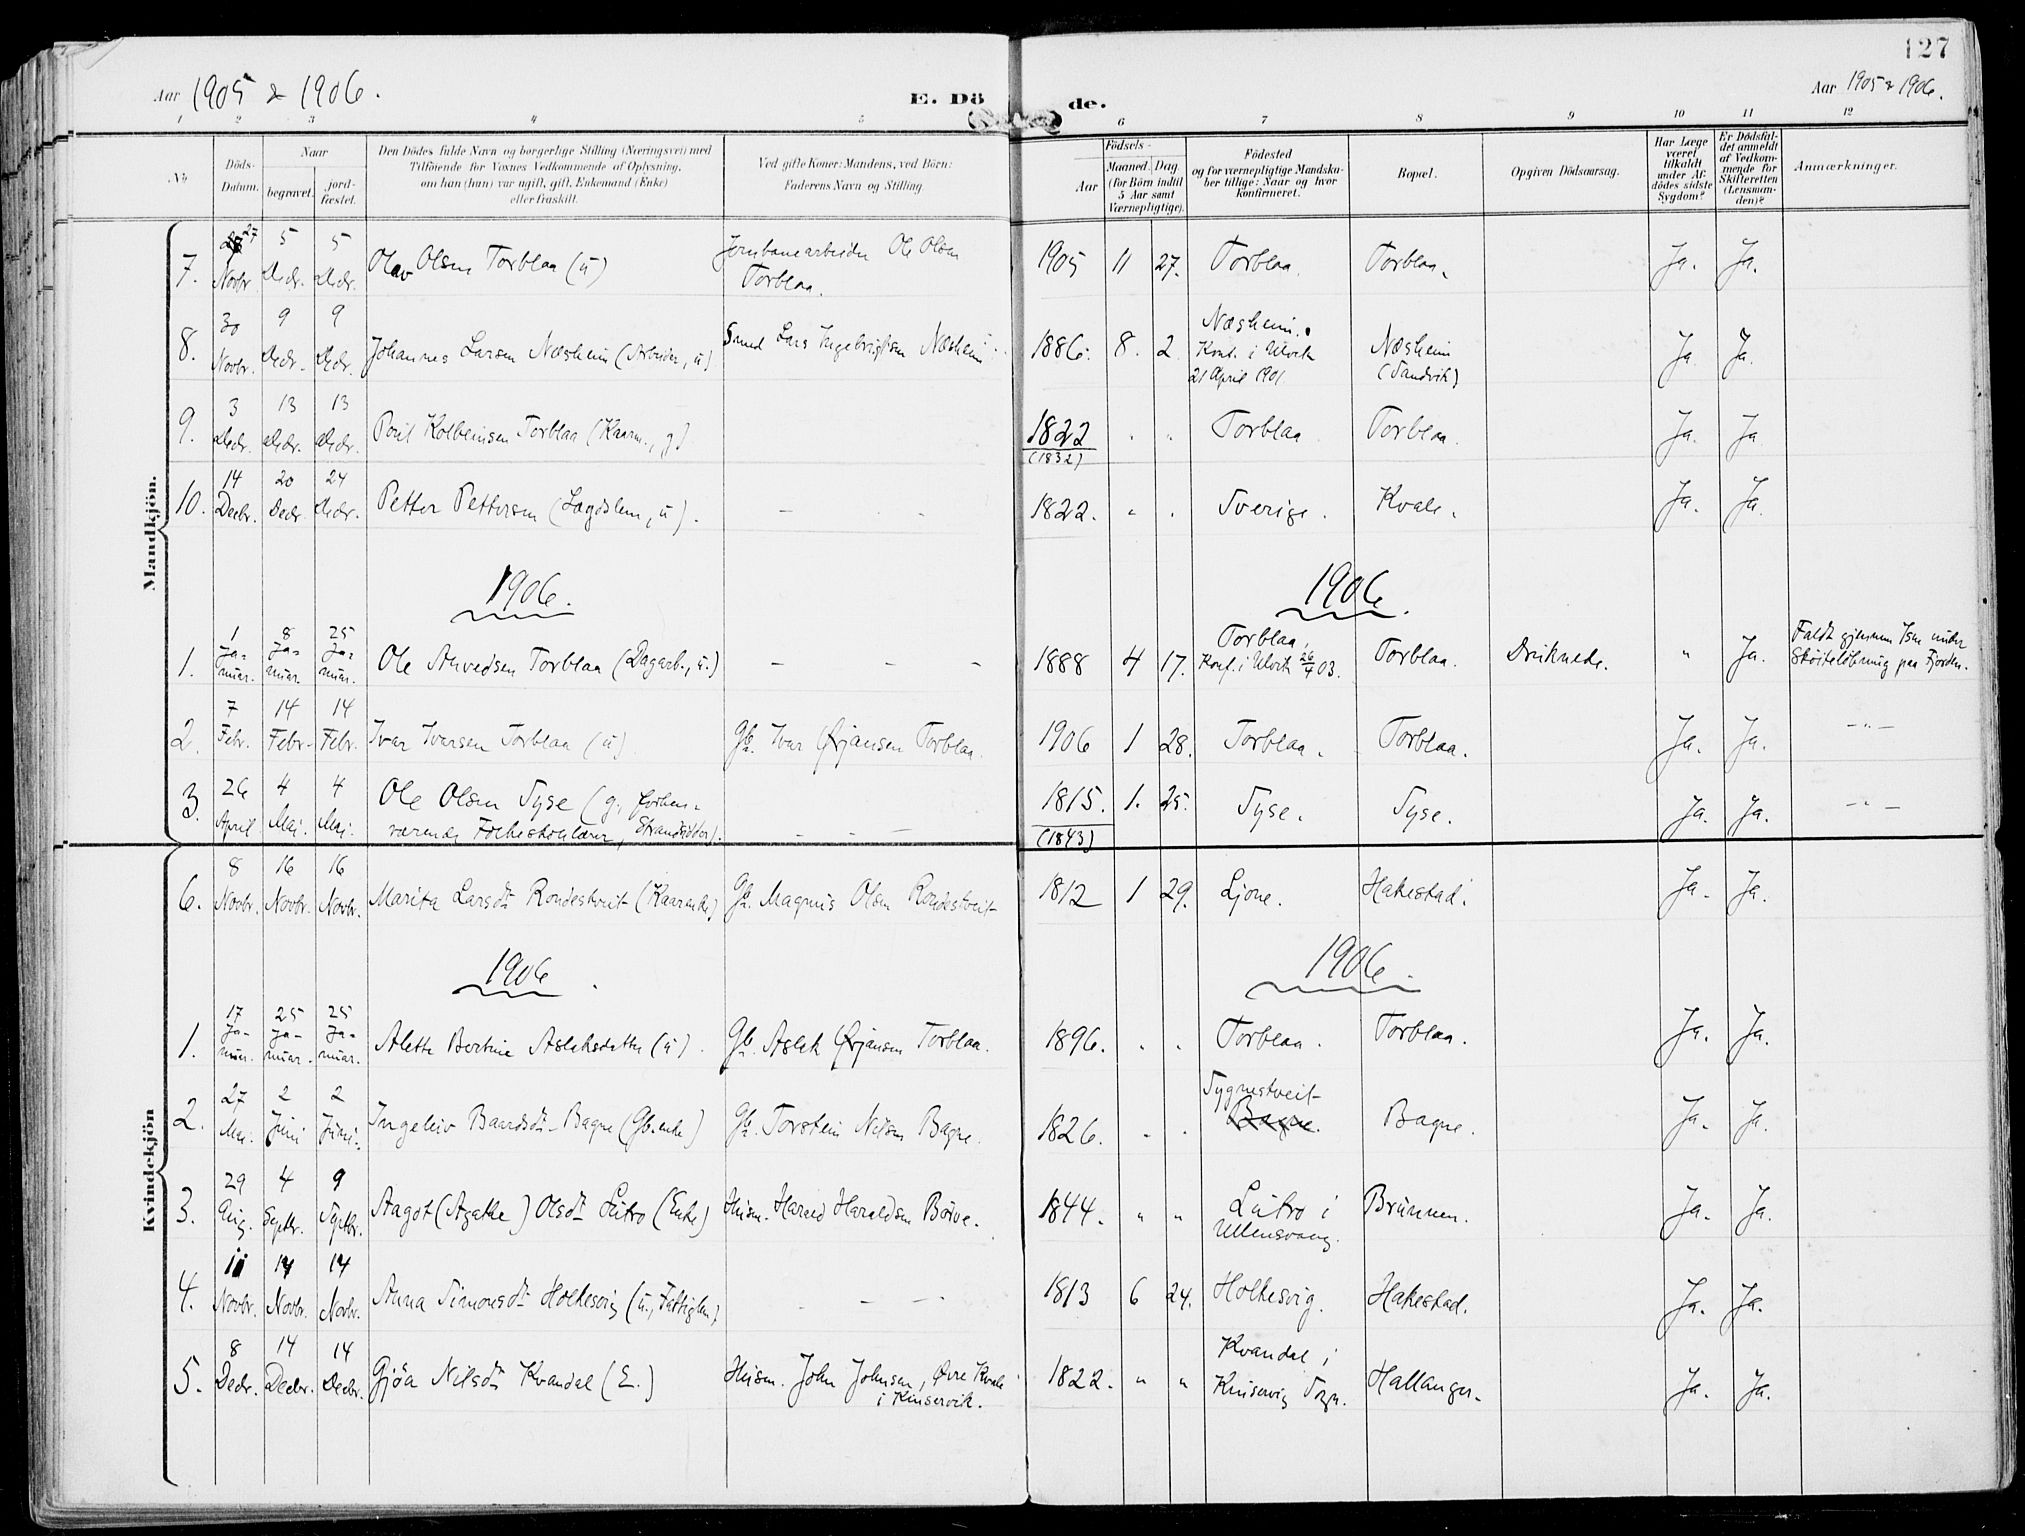 127
Aar 1905 & 1906.
E. Dö de.
Aar 1905 & 1906.
1 2 3 4 5 6 7 8 9 10 11 12
No
Döds-Datum.
Naar
begravet.
jord-fæstet.
Den Dödes fulde Navn og borgerlige Stilling (Næringsvei) med
Tilföiende for Voxnes Vedkommende af Oplysning,
om han (hun) var ugift, gift, Enkemand (Enke)
eller fraskilt.
Ved gifte Koner: Mandens, ved Börn:
Faderens Navn og Stilling.
Födsels-
Aar
Maaned. Dag.
(for Börn indtil
5 Aar samt
Værnepligtige).
Födested
og for værnepligtige Mandskaber tillige: Naar og hvor
konfirmeret.
Bopæl.
Opgiven Dödsaarsag.
Har Læge
været
tilkaldt
under Afdödes sidste
Sygdom?
Er Dödsfaldet anmeldt
af Vedkommende for
Skifteretten
(Lensmanden)?
Anmærkninger.
Mandkjön.
7. 27 Novbr. 5 Decbr. 5 Decbr. Olav Olsen Torblaa (u) Jernbanearbeider Ole Olsen Torblaa. 1905 11 27. Torblaa. Torblaa. Ja. Ja.
8. 30 Novbr. 9 Decbr. 9 Decbr. Johannes Larsen Næsheim (Arbeider, u) Smed Lars Ingebrigtsen Næsheim 1886. 8. 2. Næsheim. Konf. i Ulvik 21 April 1901 Næsheim (Sandvik) Ja. Ja.
9. 3 Decbr. 13 Decbr. 13 Decbr. Kolbeinsen Torblaa (Kaarm., g) 1822 (1832) " " Torblaa Torblaa. Ja. Ja
10. 14 Decbr. 20 Decbr. 24 Decbr. Petter Pettersen (Lægdslem, u). — 1822. " " Sverige. Kvale. Ja. Ja.
1906. 1906.
1. 1 Januar. 8 Januar. 25 Januar. Ole Torblaa (Dagarb., u.) — — — 1888 4 17. Torblaa. Konf. i Ulvik 26/4 03. Torblaa. Druknede. " Ja. Faldt gjennem Isen under Skøiteløbning paa Fjorden.
2. 7 Febr. 14 Febr. 14 Febr. Ivar Ivarsen Torblaa (u). Gb. Ivar Ørjansen Torblaa. 1906 1 28. Torblaa. Torblaa. Ja. Ja. —"—
3. 26 April 4 Mai. 4 Mai. Ole Olsen Syse (g., forhenværende Folkeskolelærer, Strandsidder). — — — 1815. (1843) 1. 25. Syse. Syse. Ja. Ja. —"—
Kvindekjön
6. 8 Novbr. 16 Novbr. 16 Novbr. Marita Larsdt. Rondestveit (Kaarenke) Gb. Magnus Olsen Rondestveit 1812 1 29. Ljone. Hakestad. Ja. Ja.
1906. 1906.
1. 17 Januar. 25 Januar. 25 Januar. Alette Bertine Aslaksdatter (u). Gb. Aslak Ørjansen Torblaa. 1896. " " Torblaa. Torblaa. Ja. Ja.
2. 27 Mai. 2 Juni 2 Juni. Ingeleiv Baardsdt. Bagne (Gb.enke) Gb. Torstein Nilsen Bagne. 1826. " " Sygnestveit Bagne. Bagne. Ja. Ja.
3. 29 Aug. 4 Septbr. 9 Septbr. Aagot (Agathe) Olsdt. Lutro (Enke) Husm. Harald Haraldsen Børve. 1844. " " Lutro i Ullensvang. Brunnen. Ja. Ja.
4. 11 Novbr. 14 Novbr. 14 Novbr. Anna Simonsdt. Holkesvig (u., Fattiglem) — — — 1813 6 24. Holkesvig. Hakestad. Ja. Ja.
5. 8 Decbr. 14 Decbr. 14 Decbr. Gjøa Nilsdt. Kvandal (E.) Husm. John Johnsen, Øvre Kvale i Kinservik. 1822. " " Kvandal i Kinservig Sogn. Hallanger. Ja. Ja.